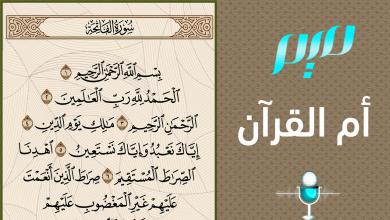 سُورَةُ الفَاتِحَةِ
بِسْمِ اللَّهِ الرَّحْمَٰنِ الرَّحِيمِ ١
الْحَمْدُ لِلَّهِ رَبِّ الْعَالَمِينَ ٢
الرَّحْمَٰنِ الرَّحِيمِ ٣ مَالِكِ يَوْمِ الدِّينِ ٤
إِيَّاكَ نَعْبُدُ وَإِيَّاكَ نَسْتَعِينُ ٥ اهْدِنَا
الصِّرَاطَ الْمُسْتَقِيمَ ٦ صِرَاطَ الَّذِينَ أَنْعَمْتَ
عَلَيْهِمْ غَيْرِ الْمَغْضُوبِ عَلَيْهِمْ
ميم
أم القرآن